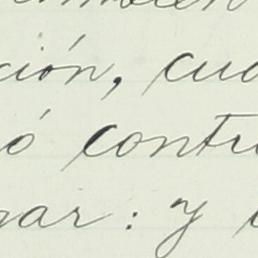 ción, cua
ó contra
gar: y